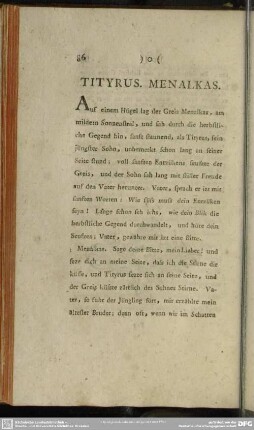 86 ) o (
TITYRUS. MENALKAS.
Auf einem Hügel lag der Greis Menalkas, am
mildern Sonnenstral, und sah durch die herbstli-
che Gegend hin, sanft staunend, als Tityrus, sein
jüngster Sohn, unbemerkt schon lang an seiner
Seite stund: voll sanften Entzükens seufzte der
Greis, und der Sohn sah lang mit stiller Freude
auf den Vater herunter. Vater, sprach er izt mit
sanften Worten: Wie süss muss dein Entzüken
seyn! Lange schon seh ichs, wie dein Blik die
herbstliche Gegend durchwandelt, und höre dein
Seufzen; Vater, gewähre mir izt eine Bitte.
Menalkas. Sage deine Bitte, mein Lieber! und
seze dich an meine Seite, dass ich die Stirne dir
küsse, und Tityrus sezte sich an seine Seite, und
der Greis küsste zärtlich des Sohnes Stirne. Va-
ter, so fuhr der Jüngling fort, mir erzählte mein
ältester Bruder; denn oft, wenn wir im Schatten
DFG